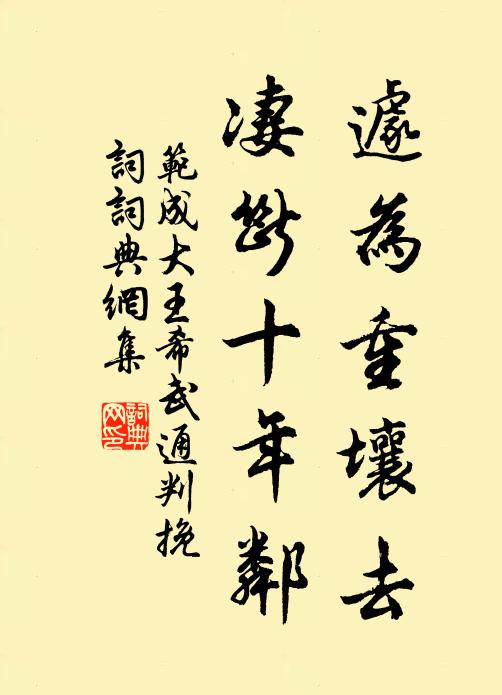 遽為重壤去
凄斷十年鄰
範成大王希武通判挽
詞詞典網集
詞典
网印